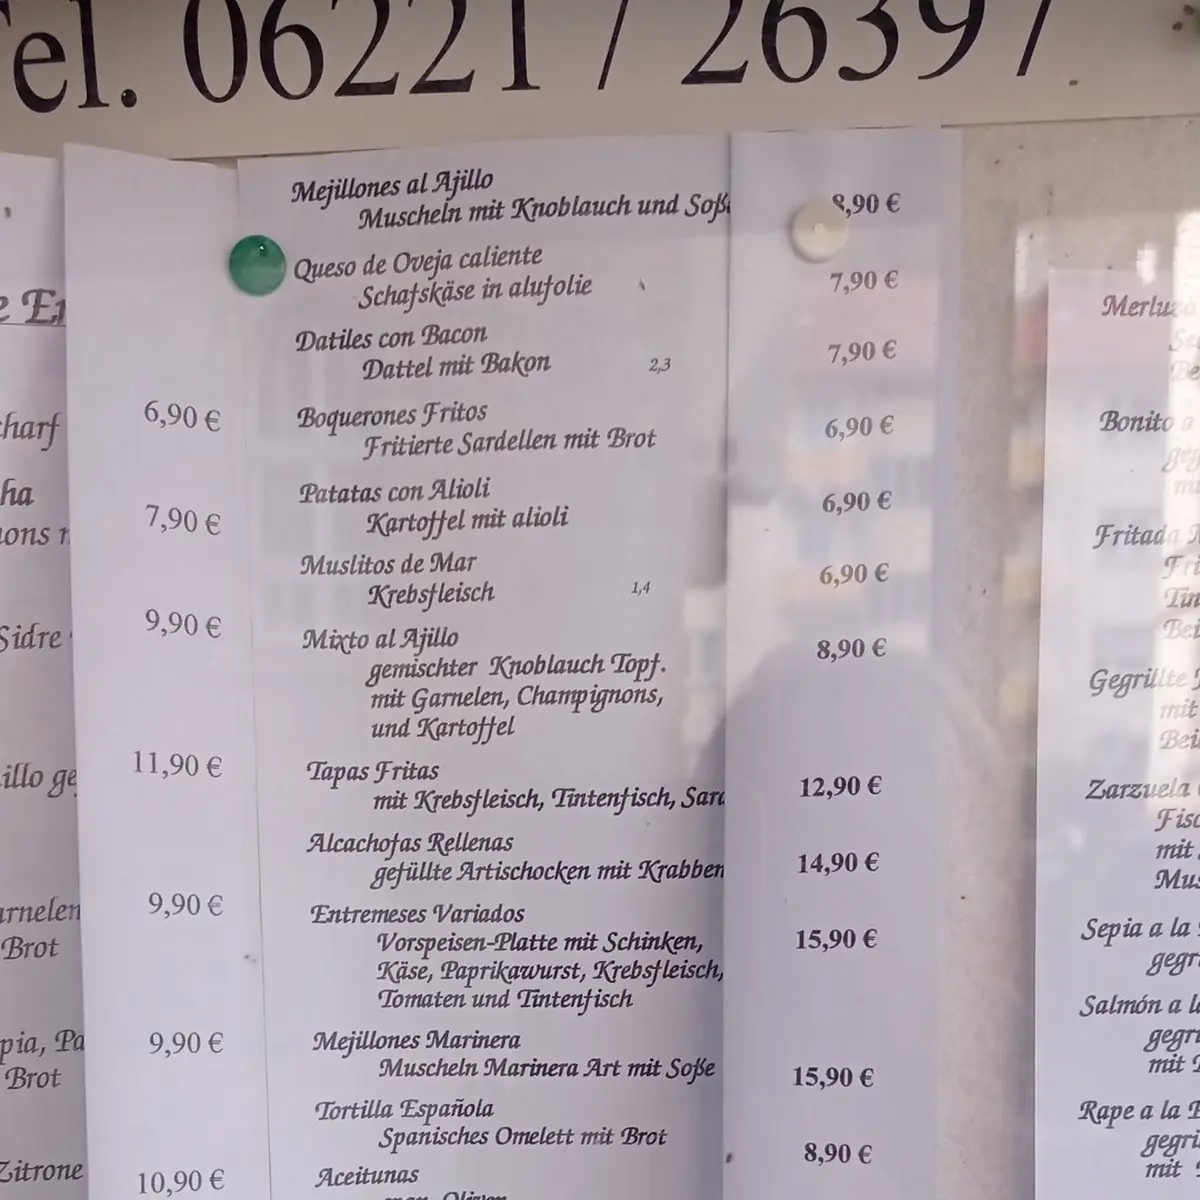 Tel. 06221 / 26397
charf
ha
Sidre
illo
Brot
pia,
Brot
Zitrone
6,90 €
7,90 €
9,90 €
11,90 €
9,90 €
9,90 €
10,90 €
Mejillones al Ajillo
Muscheln mit Knoblauch und Soße 8,90 €
Queso de Oveja caliente
Schafskäse in alufolie 7,90 €
Datiles con Bacon
Dattel mit Bakon 2,3 7,90 €
Boquerones Fritos
Fritierte Sardellen mit Brot 6,90 €
Patatas con Alioli
Kartoffel mit alioli 6,90 €
Muslitos de Mar
Krebsfleisch 1,4 6,90 €
Mixto al Ajillo
gemischter Knoblauch Topf. 8,90 €
mit Garnelen, Champignons,
und Kartoffel
Tapas Fritas
mit Krebsfleisch, Tintenfisch, 12,90 €
Alcachofas Rellenas
gefüllte Artischocken mit Krabben 14,90 €
Entremeses Variados
Vorspeisen-Platte mit Schinken, 15,90 €
Käse, Paprikawurst, Krebsfleisch,
Tomaten und Tintenfisch
Mejillones Marinera
Muscheln Marinera Art mit Soße 15,90 €
Tortilla Española
Spanisches Omelett mit Brot 8,90 €
Aceitunas
Merluza
Bonito a
Fritada
Gegrillte
mit
Zarzuela
mit
Sepia a la
Salmón a la
mit
Rape a la
mit